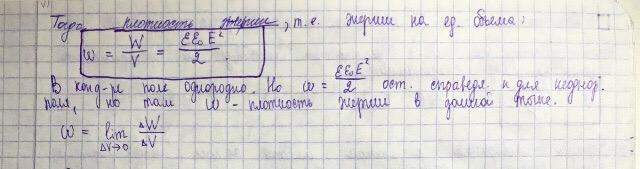 Тогда плотность энергии, т.е. энергии на ед. объёма:
ω = W/V = εε₀E²/2.
В конд-ре поле однородно. Но ω = εε₀E²/2 ост. справедл. и для неоднор.
поля, но там ω - плотность энергии в данной точке.
ω = lim ΔV→0 ΔW/ΔV